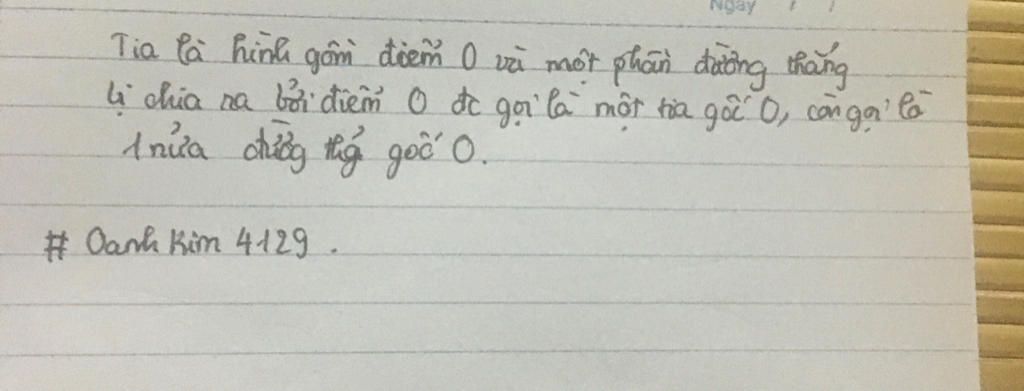 Ngày / /
Tia là hình gồm điểm O và một phần đường thẳng
bị chia ra bởi điểm O đc gọi là một tia gốc O, còn gọi là
1 nửa đường thg gốc O.
# Oanh Kim 4129 .